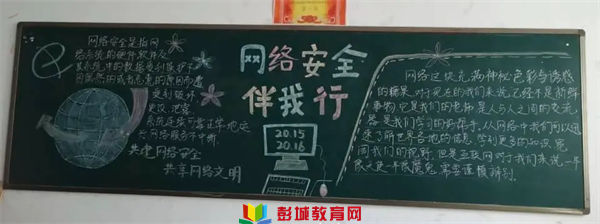 网络安全是指网
络系统的硬件软件及
其系统中的数据受到保护不
因偶然的或者恶意的原因而遭
受到破坏
更改泄露
系统连续可靠正常地运
行网络服务不中断
共建网络安全
共享网络文明
网络安全
伴我行
20.15
20.16
网络这块充满神秘色彩与诱惑
的糖果,对于现在的我们来说已经不是新鲜
事物,它是我们的老师是人与人之间的交流
器是我们学习的好帮手,从网络中我们可以迅
速了解世界各地的信息,学到更多的知识,宽
阔我们的视野,但是互联网对于我们来说一半
是天使一半是魔鬼,需要谨慎辨别。
彭城教育网